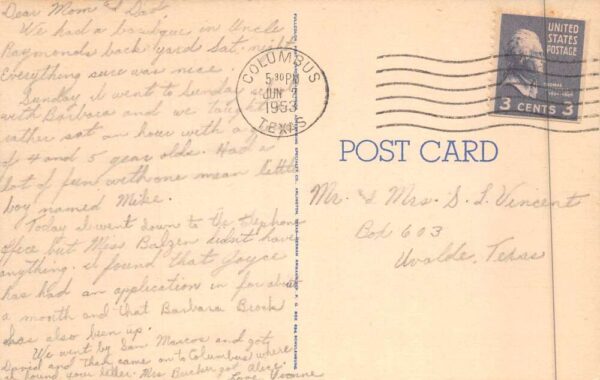 Dear Mom & Dad
We had a barbque in Uncle
Raymonds back yard sat. night
Everything sure was nice.
Sunday I went to Sunday
with Barbara and we taught
rather sat an hour with a
of 4 and 5 year olds. Had a
lot of fun with one mean little
boy named Mike.
Today I went down to the telephone
office but Miss didn't have
anything. I found that Joyce
has had an application in for about
a month and that Barbara Brock
has also been up.
We went by San Marcos and got
David and then came on to Columbus where
I found your letter. Mrs
Love
COLUMBUS
5:30 PM
JUN 2
1953
TEXAS
UNITED
STATES
POSTAGE
3 CENTS 3
POST CARD
Mr. & Mrs. S. L. Vincent
Box 603
Uvalde, Texas